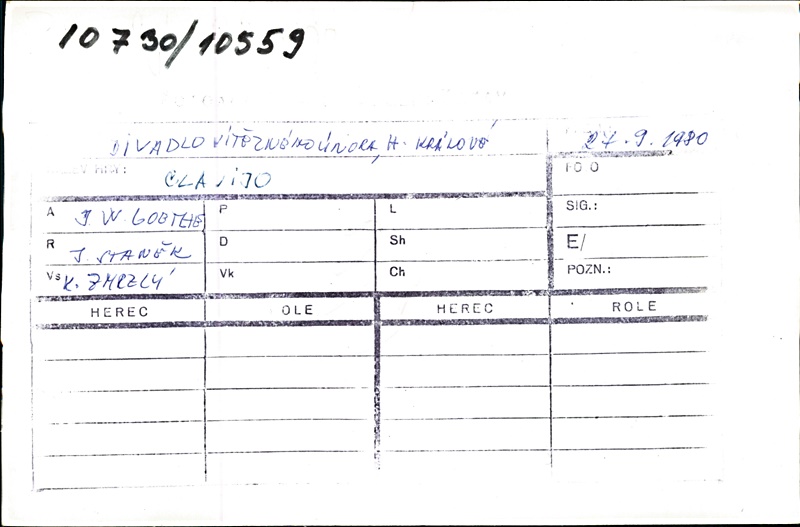 10730/10559
DIVADLO VÍTĚZNÉHO ÚNORA, H. KRÁLOVÉ 27.9.1980
CLAVIJO FO O
A J. W. GOETHE P L SIG.:
R J. STANĚK D Sh E/
Vs K. ZMRZLÝ Vk Ch POZN.:
HEREC OLE HEREC ROLE